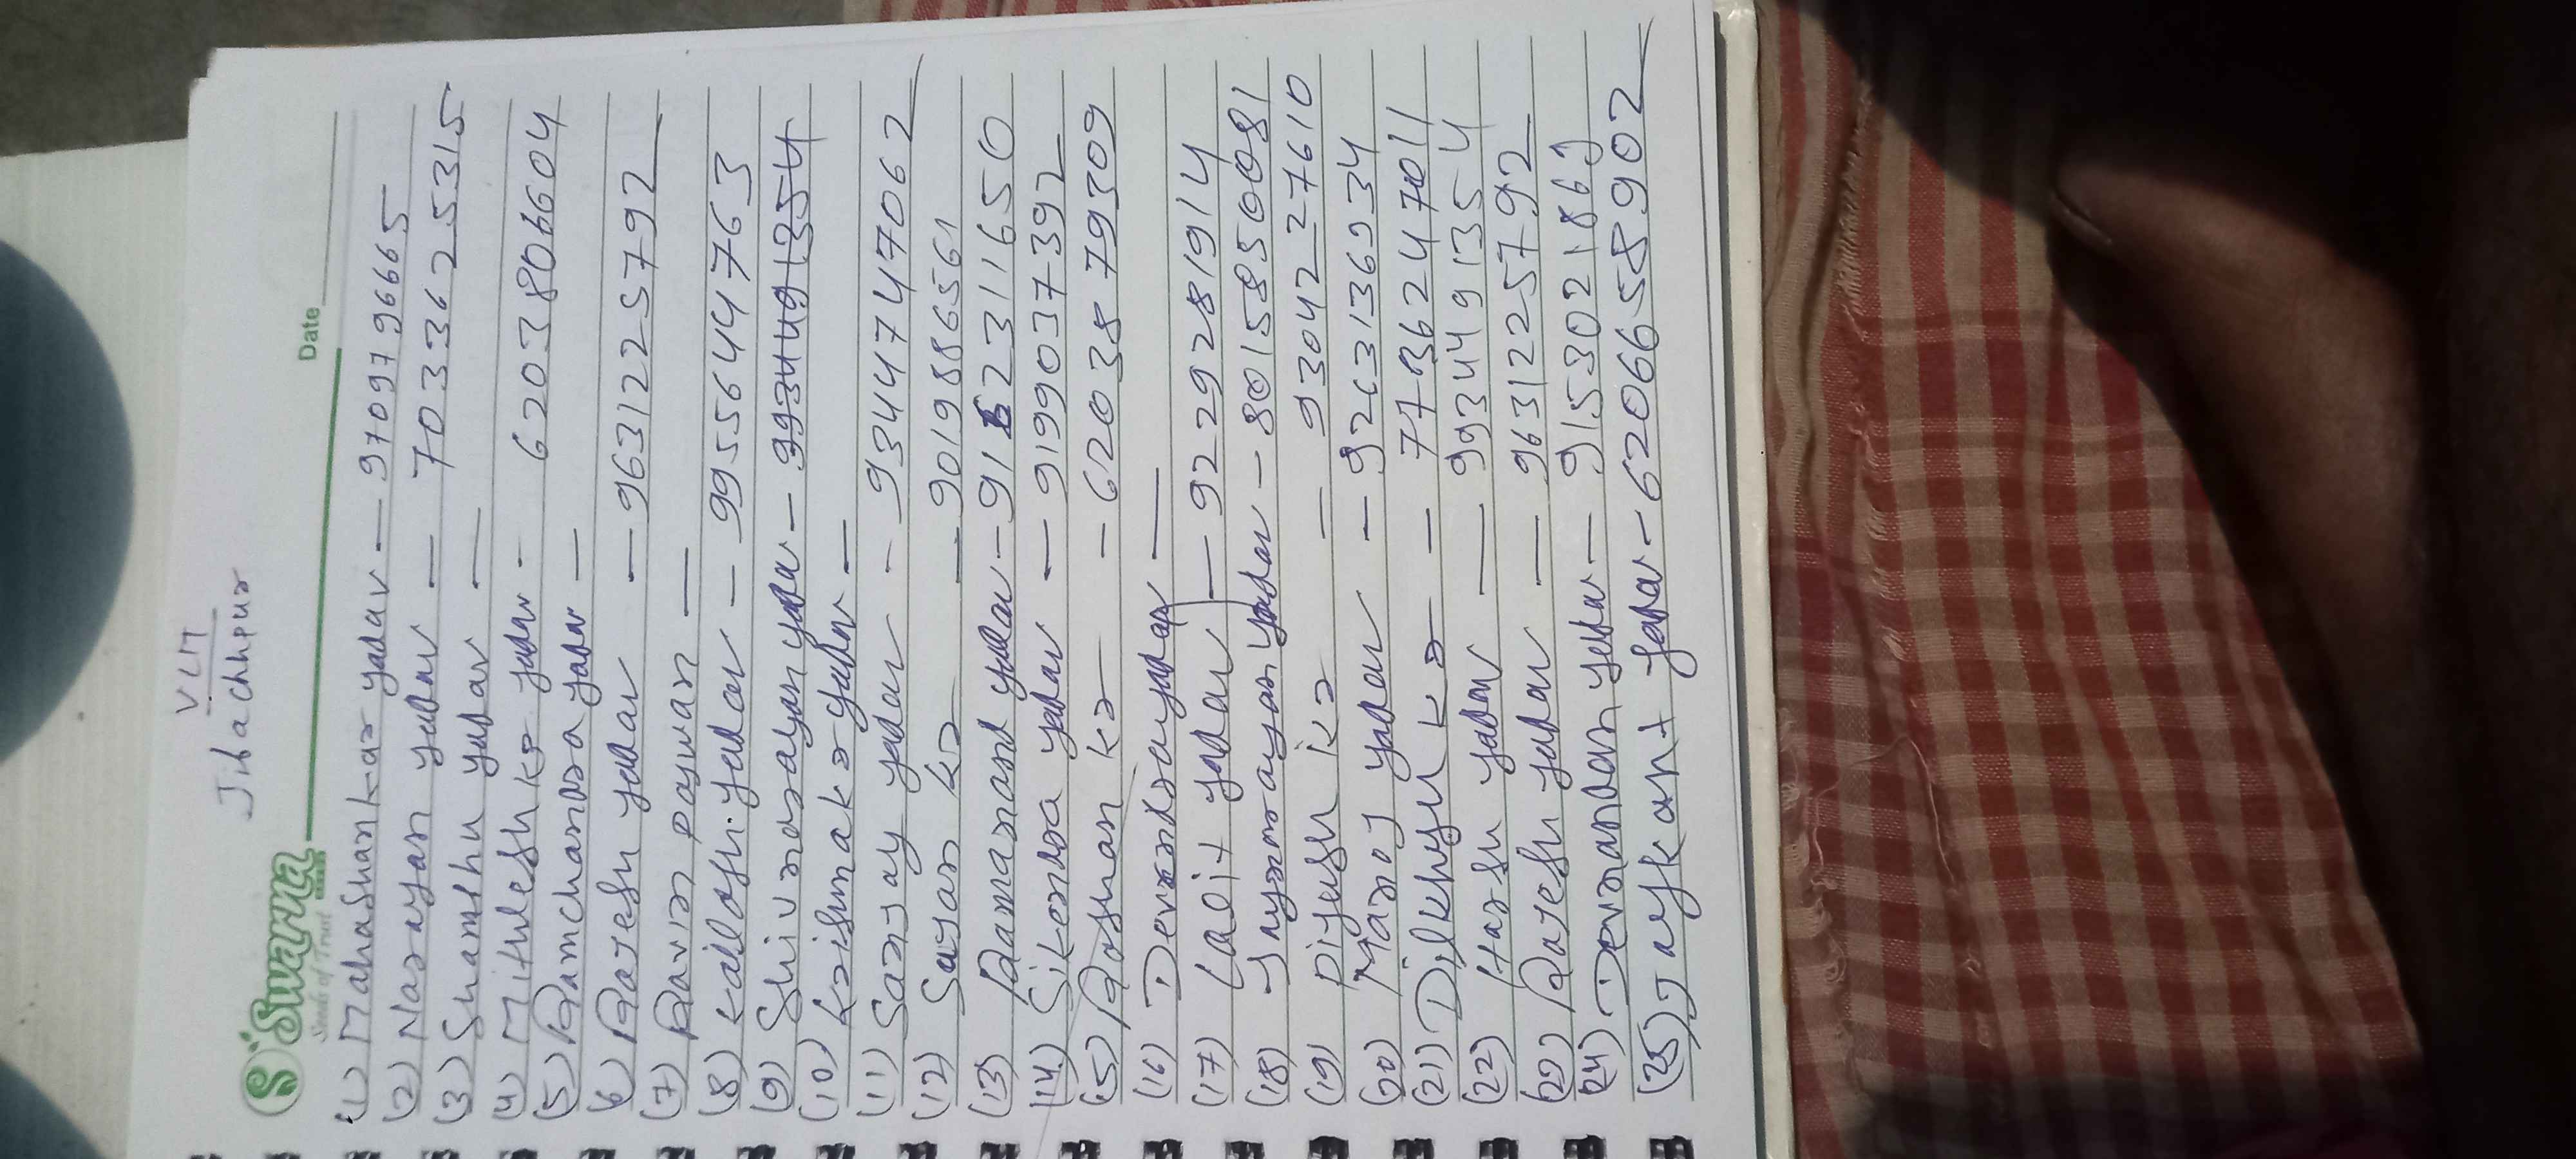 VLM
Jibachhpur
Swarna
Seeds of Trust
Date
(1) Mahashankar yadav — 9709796665
(2) Narayan yadav — 7033625315
(3) Sudhanshu yadav —
(4) Mithlesh kr yadav - 6203806604
(5) Ramchandra yadav —
(6) Rajesh yadav — 9631225792
(7) Ravin paswan —
(8) Kailash yadav — 9955644763
(9) Shivnarayan yadav — 9934491354
(10) Krishna kr yadav —
(11) Sanjay yadav — 9344747062
(12) Sajan kr — 9019886561
(13) Ramanand yadav — 9162311650
(14) Sikendra yadav — 9199037392
(15) Roshan kr — 6203879309
(16) Devendra yadav —
(17) Lalit yadav — 9229281914
(18) Jaynarayan yadav — 8015850081
(19) Piyush kr — 9304227610
(20) Manoj yadav — 9263136934
(21) Dilkhush kr —
(22) Harsh yadav — 9934491354
(23) Rajesh yadav — 9631225792
(24) Devnandan yadav —
(25) Jaykant yadav — 6206658902